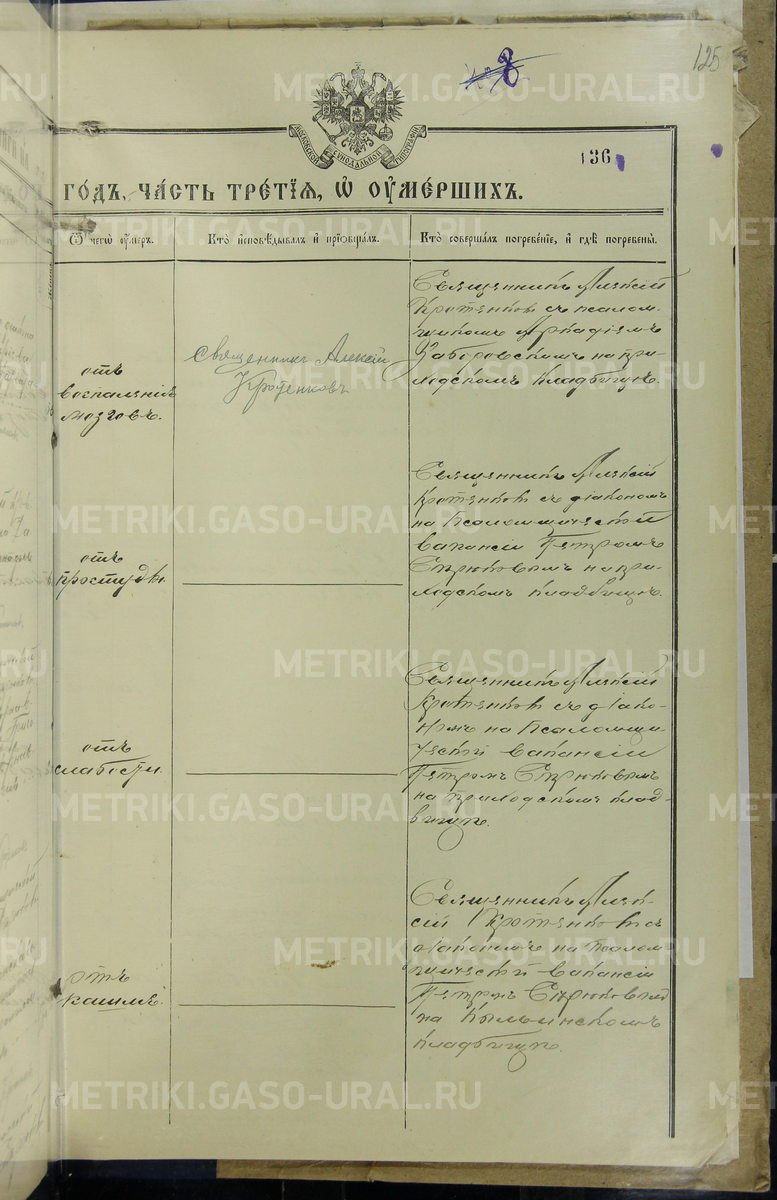 125
136
МОСКОВСКОЙ СѴНОДАЛЬНОЙ ТИПОГРАФІИ
ГО́ДЪ, ЧА́СТЬ ТРЕ́ТІѦ, Ѡ ОУМЕ́РШИХЪ.
Ѿ чегѡ̀ оу́меръ.
Кто̀ и҆сповѣ́дывалъ и҆ прїѡбща́лъ.
Кто̀ соверша́лъ погребе́нїе, и҆ гдѣ̀ погребены̀.
отъ
воспаленія
мозговъ.
Священникъ Алексій
Кротенковъ
Священникъ Алексій
Кротенковъ съ псалом-
щикомъ Аркадіемъ
Заборовскимъ на при-
ходскомъ кладбищѣ.
отъ
простуды.
Священникъ Алексій
Кротенковъ съ діакономъ
на псаломщической
вакансіи Петромъ
на при-
ходскомъ кладбищѣ.
отъ
слабости.
Священникъ Алексій
Кротенковъ съ діако-
номъ на псаломщи-
ческой вакансіи
Петромъ
на приходскомъ клад-
бищѣ.
отъ
кашля.
Священникъ Алек-
сій Кротенковъ съ
діакономъ на псалом
щической вакансіи
Петромъ
на
кладбищѣ.
METRIKI.GASO-URAL.RU